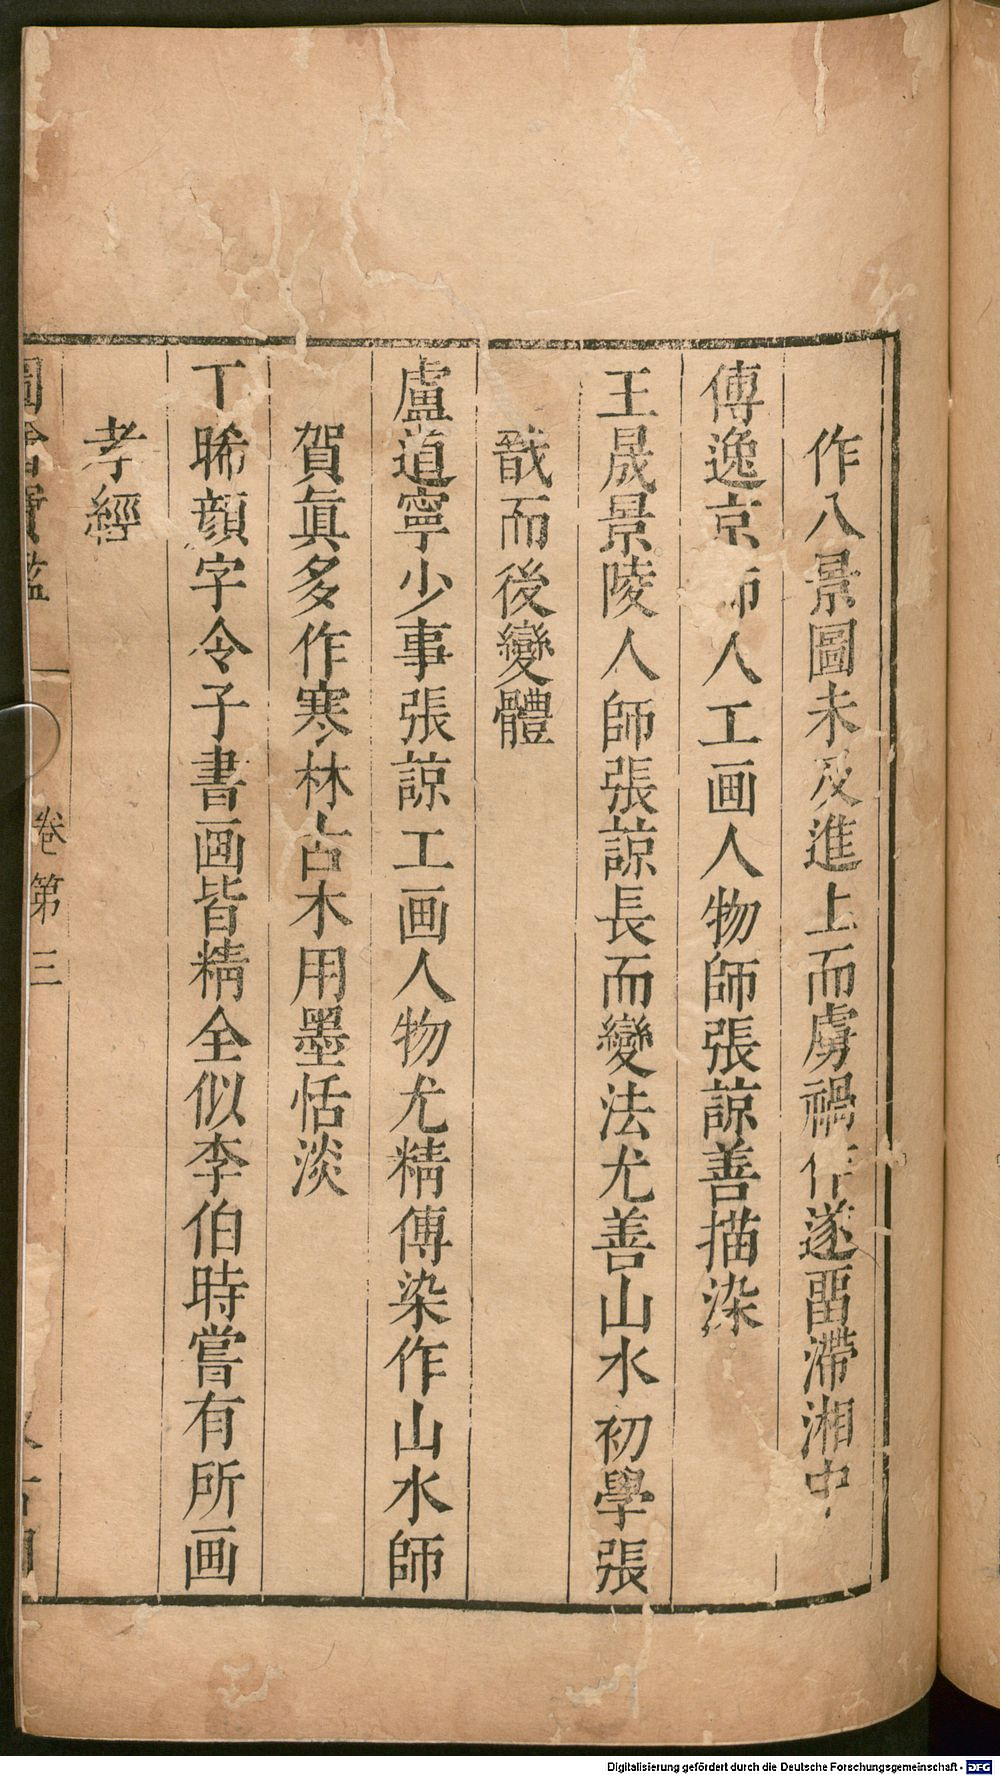 作八景圖未及進上而虜禍作遂畱滯湘中
傅逸京師人工画人物師張諒善描染
王晟景陵人師張諒長而變法尤善山水初學張
戩而後變體
盧道寧少事張諒工画人物尤精傅染作山水師
賀眞多作寒林古木用墨恬淡
丁晞顔字令子書画皆精全似李伯時嘗有所画
孝經
圖繪寶鑑 卷第三
Digitalisierung gefördert durch die Deutsche Forschungsgemeinschaft - DFG